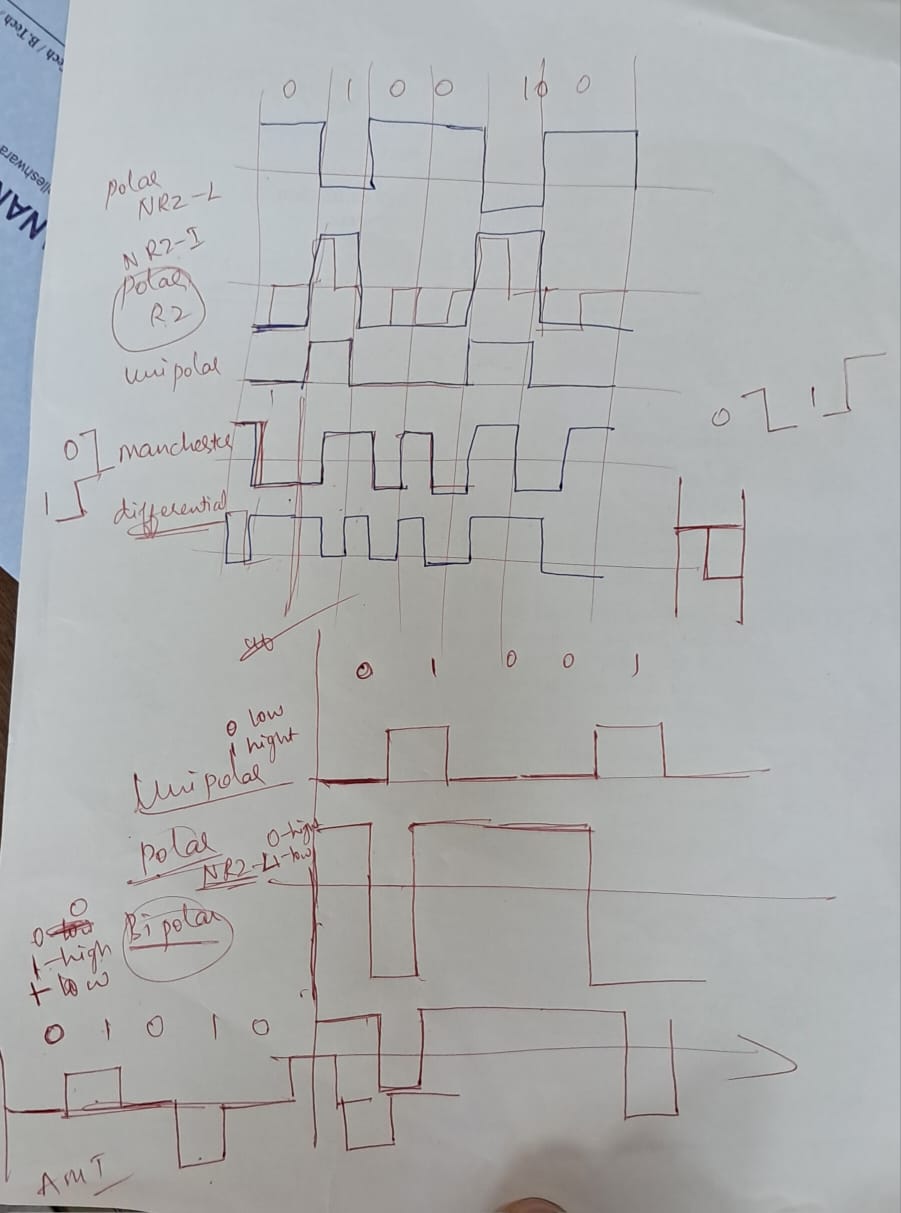 Tech / B.Tech /
lleshwara
NAN
0 1 0 0 1 0 0
polar
NRZ-L
NRZ-I
polar
RZ
unipolar
0 1
0 manchester
1
differential
0 1 0 0 1
0 low
1 hight
Unipolar
polar 0-high
NRZ-L 1-low
0
Bipolar
1-high
+ low
0 1 0 1 0
AMI